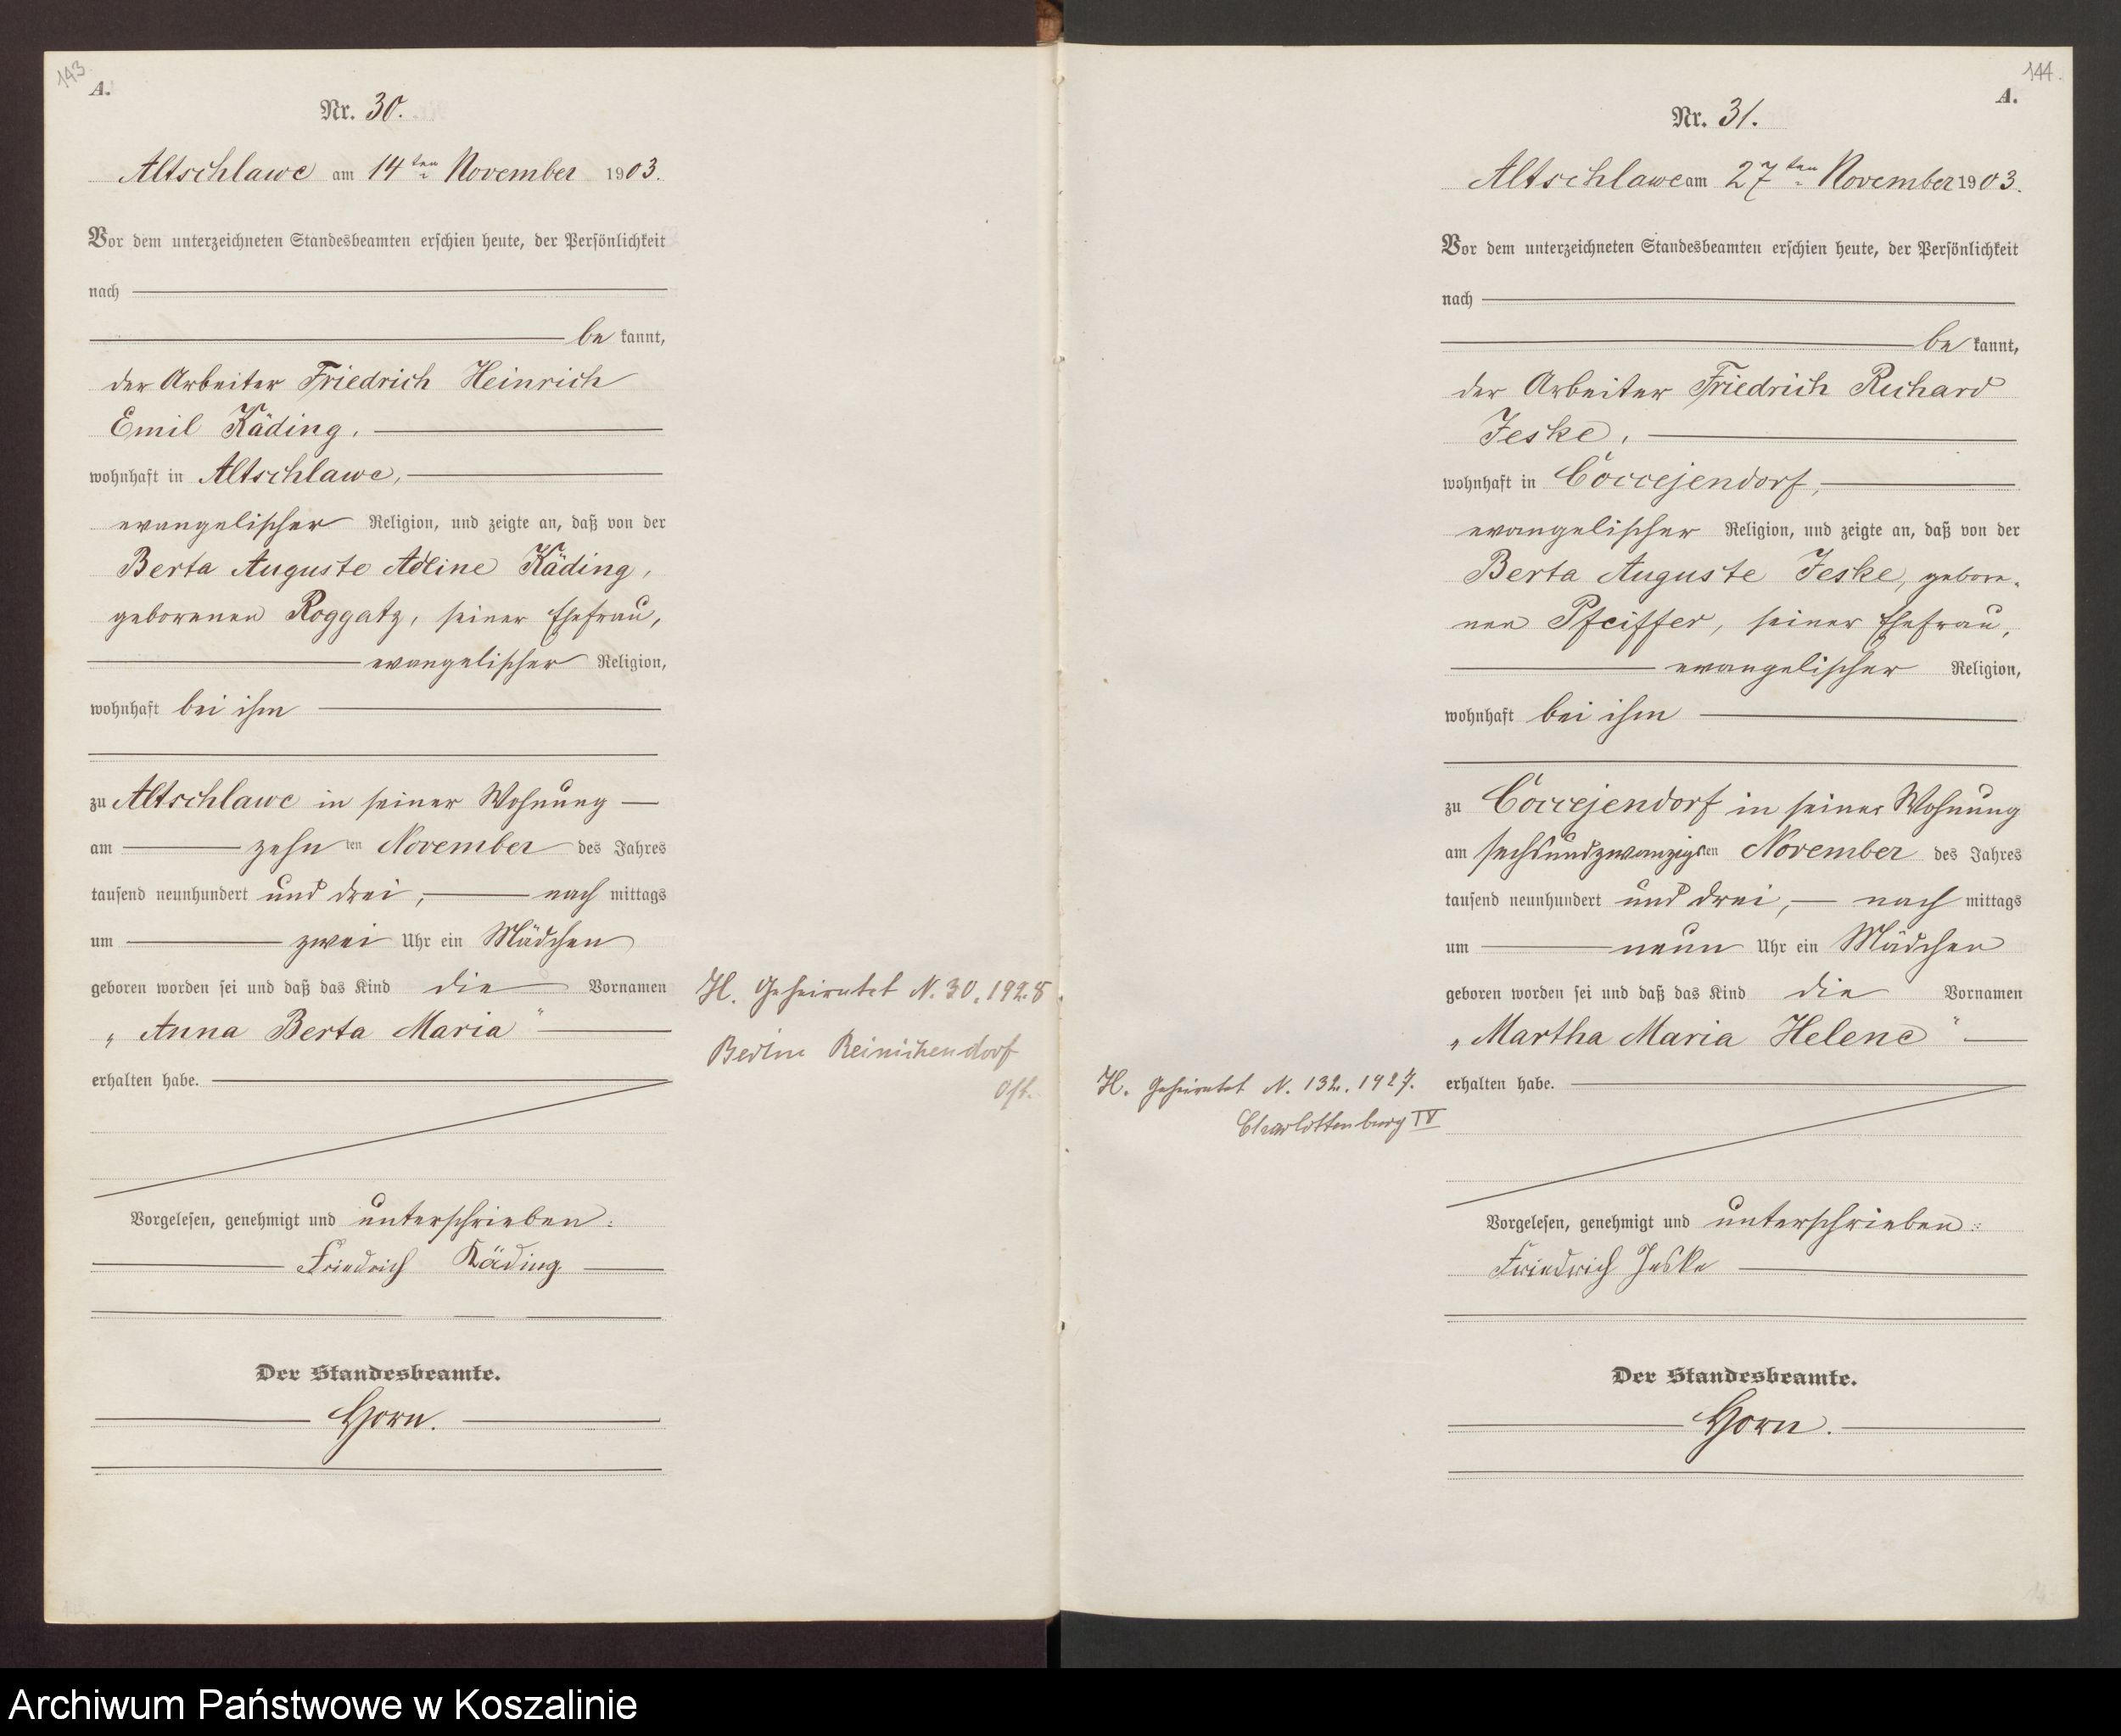 143.
A.
Nr. 30.
Altschlawe am 14ten November 1903.
Vor dem unterzeichneten Standesbeamten erschien heute, der Persönlichkeit
nach
be kannt,
der Arbeiter Friedrich Heinrich
Emil Käding,
wohnhaft in Altschlawe,
evangelischer Religion, und zeigte an, daß von der
Berta Auguste Adline Käding,
geborenen Roggatz, seiner Ehefrau,
evangelischer Religion,
wohnhaft bei ihm
zu Altschlawe in seiner Wohnung
am zehn ten November des Jahres
tausend neunhundert und drei, nach mittags
um zwei Uhr ein Mädchen
geboren worden sei und daß das Kind die Vornamen
„Anna Berta Maria“
erhalten habe.
H. Geheiratet N. 30. 1928
Berlin Reinickendorf
Ost.
Vorgelesen, genehmigt und unterschrieben:
Friedrich Käding
Der Standesbeamte.
Horn.
144.
A.
Nr. 31.
Altschlawe am 27ten November 1903.
Vor dem unterzeichneten Standesbeamten erschien heute, der Persönlichkeit
nach
be kannt,
der Arbeiter Friedrich Richard
Jeske,
wohnhaft in Coccejendorf,
evangelischer Religion, und zeigte an, daß von der
Berta Auguste Jeske, gebore-
nen Pfeiffer, seiner Ehefrau,
evangelischer Religion,
wohnhaft bei ihm
zu Coccejendorf in seiner Wohnung
am sechsundzwanzigsten November des Jahres
tausend neunhundert und drei, nach mittags
um neun Uhr ein Mädchen
geboren worden sei und daß das Kind die Vornamen
„Martha Maria Helene“
erhalten habe.
H. Geheiratet N. 132. 1927.
Charlottenburg IV
Vorgelesen, genehmigt und unterschrieben:
Friedrich Jeske
Der Standesbeamte.
Horn.
Archiwum Państwowe w Koszalinie